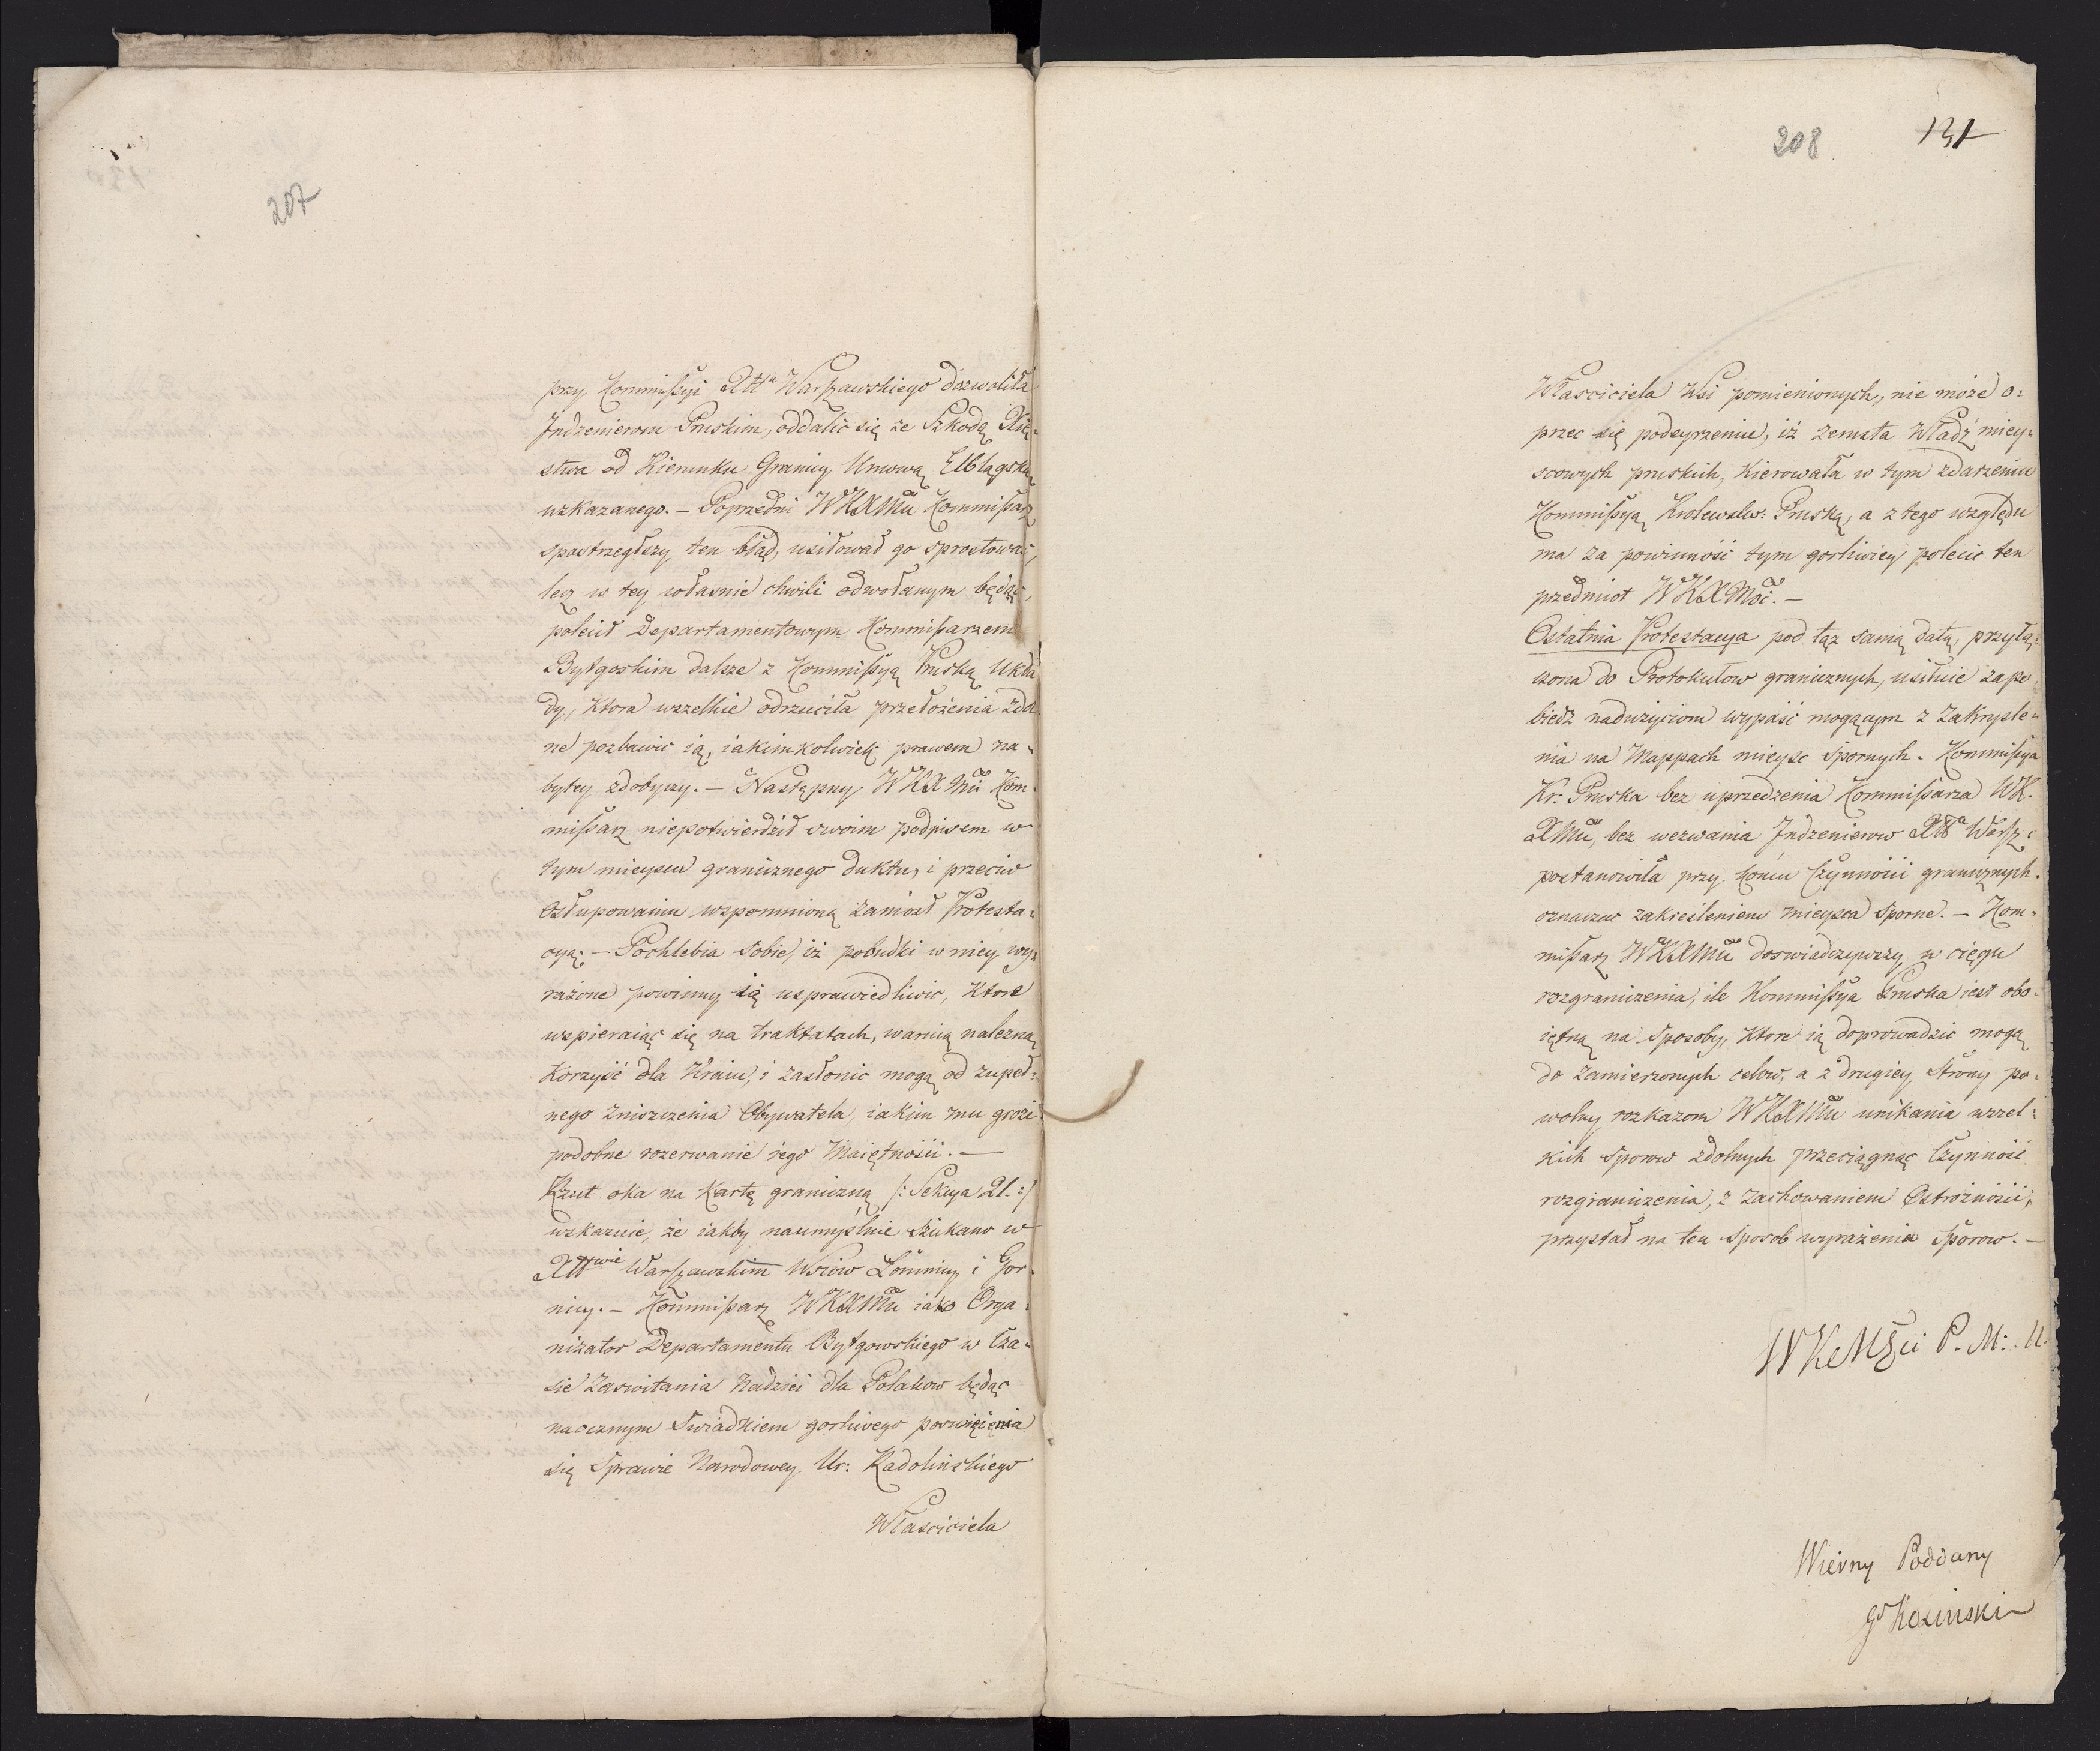 207
przy Kommißyi Xttᵃ Warszawskiego dozwoliła
Indzenierom Pruskim, oddalic się ze Szkodą Xię-
stwa od Kierunku Granicy Umową Elblągską
uzkazanego. – Poprzedni WKXMci Kommißarz
spostrzegłszy ten błąd, usiłował go sprostować,
lecz w tey własnie chwili odwołanym będąc,
polecił Departamentowym Kommißarzem
Bydgoskim dalsze z Kommißyą Pruską Ukła
dy, Ktora wszelkie odrzuciła przełożenia zdol
ne pozbawic ią, iakimkolwiek prawem na-
bytey zdobyczy. – Następny WKXMci Kom-
mißarz niepotwierdził swoim podpisem w
tym mieyscu granicznego duktu, i przeciw
Osłupowaniu wspomnioną zaniosł Protesta-
cyą: – Pochlebia Sobie, iż pobudki w niey wy-
rażone powinny ią usprawiedliwic, Ktore
wspieraiąc się na traktatach, warują należną
Korzyść dla Kraiu, i zasłonic mogą od zupeł-
nego zniszczenia Obywatela, iakim mu grozi
podobne rozerwanie iego Maiętności. –
Rzut oka na Kartę graniczną /: Sekcya 21. :/
wskazuie, że iakby naumyślnie szukano w
Xttwie Warszawskim Wsiów Łomnicy i Gor-
nicy. – Kommißarz WKXMci iako Orga-
nizator Departamentu Bydgowskiego w Cza-
sie Zaswitania Nadziei dla Polakow będąc
naocznym Swiadkiem gorliwego poswięcenia
się Sprawie Narodowey, Ur: Radolinskiego
Własciciela
208 131
Własciciela Wsi pomienionych, nie może o:
przec się podeyrzeniu, iż zemsta Władz miey-
scowych pruskich, Kierowała w tym zdarzeniu
Kommißyą Krolewsko: Pruską, a z tego względu
ma za powinność tym gorliwiey polecic ten
przedmiot WKXMci. –
Ostatnia Protestacya pod tąż samą datą, przyłą-
czona do Protokułow granicznych, usiłuie zapo-
biedz nadużyciom wypaść mogącym z Zakryśle-
nia na Mappach mieysc Spornych. Kommißya
Kr: Pruska bez uprzedzenia Kommißarza WK.
XMci, bez wezwania Indzenierow Xttᵃ Warsz:
postanowiła przy końcu Czynności granicznych.
oznaczac zakreśleniem mieysca Sporne. – Kom-
mißarz WKXMci doswiadczywszy w ciągu
rozgraniczenia, ile Kommißya Pruska iest obo-
iętną na Sposoby, Ktore ią doprowadzic mogą
do Zamierzonych celow, a z drugiey Strony po-
wolny rozkazom WKXMci unikania wszel-
kich Sporow zdolnych przeciągnąc Czynność
rozgraniczenia, z Zachowaniem Ostrożności,
przystał na ten Sposob wyrażenia Sporow. –
WKcMści P. M: M.
Wierny Poddany
Kosinski